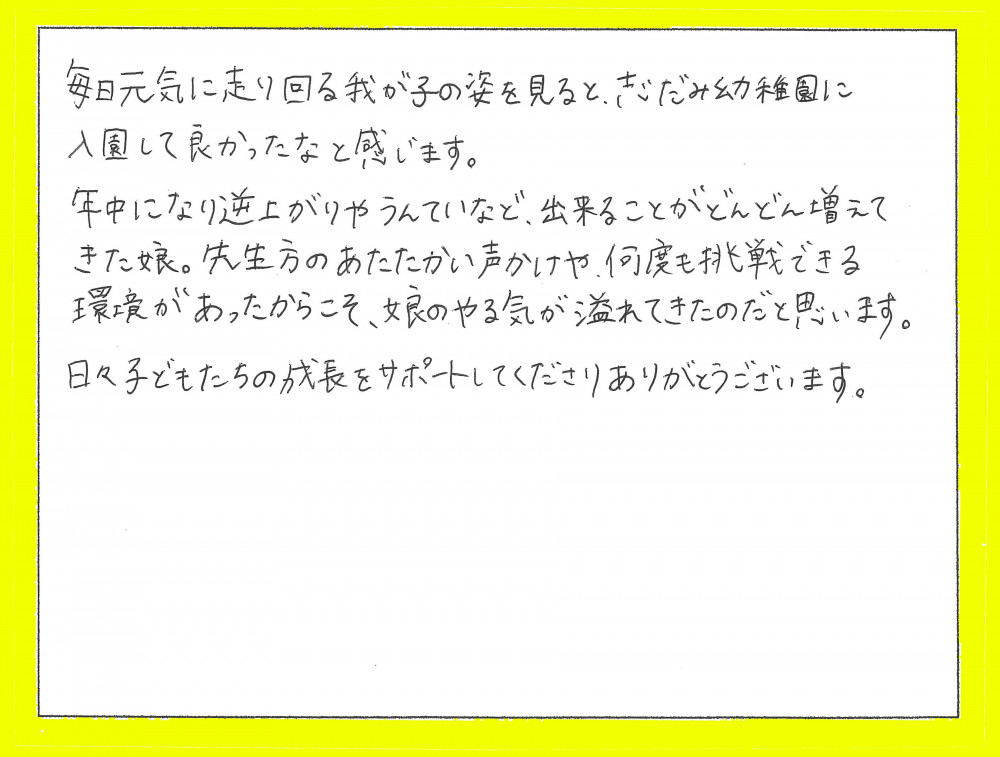 毎日元気に走り回る我が子の姿を見ると、きだみ幼稚園に
入園して良かったなと感じます。
年中になり逆上がりやうんていなど、出来ることがどんどん増えて
きた娘。先生方のあたたかい声かけや、何度も挑戦できる
環境があったからこそ、娘のやる気が溢れてきたのだと思います。
日々子どもたちの成長をサポートしてくださりありがとうございます。